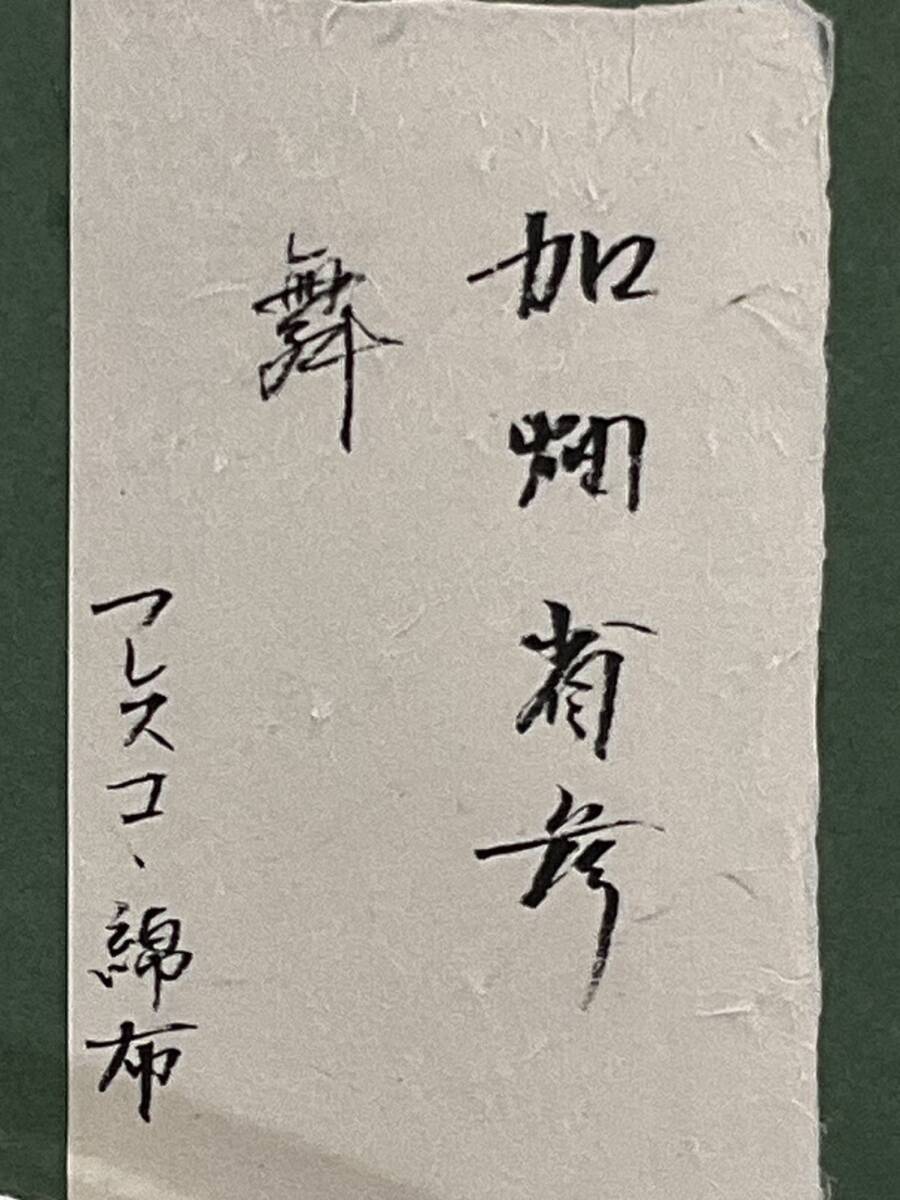 加畑省参
舞
フレスコ、綿布